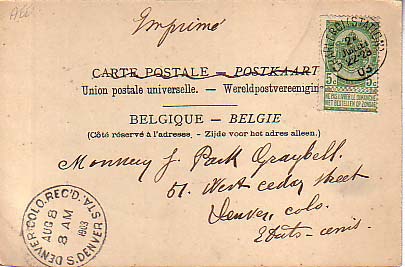 Imprimé
CARTE POSTALE – POSTKAART
Union postale universelle. – Wereldpostvereeniging
BELGIQUE – BELGIE
(Côté réservé à l'adresse. - Zijde voor het adres alleen.)
5c 5c
NE PAS LIVRER LE DIMANCHE
NIET BESTELLEN OP ZONDAG
22-23
03
Monsieur J. Park Graybell.
51. West cedar street
Denver, colo.
Etats-unis.
S. DENVER, COLO. REC'D. STA.
AUG 8
8 AM
1903
S. DENVER